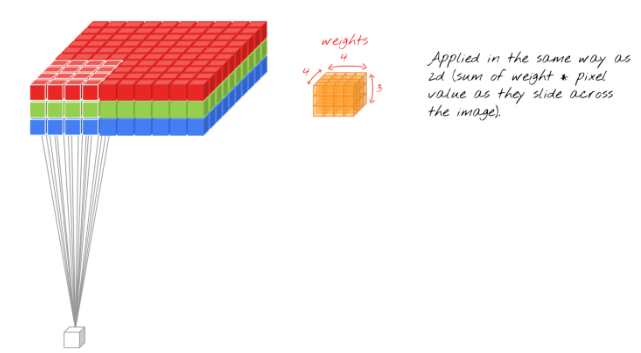 weights
4
4
3
Applied in the same way as
2d (sum of weight * pixel
value as they slide across
the image).